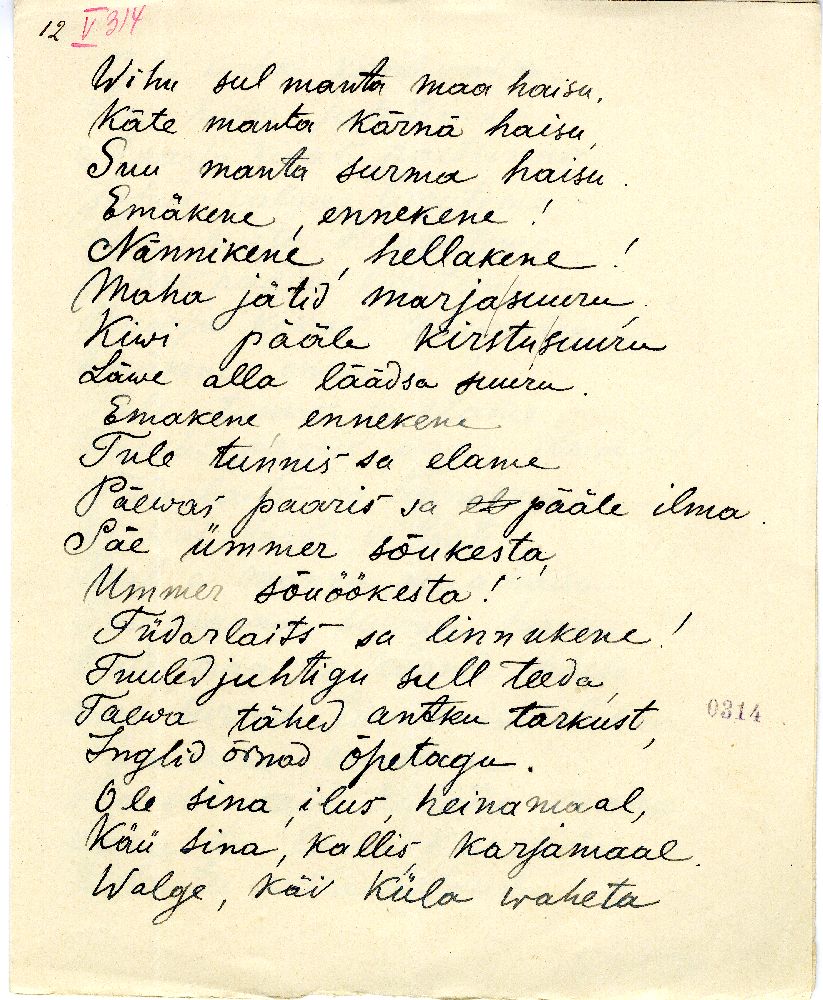 12 V 314
Wihu sul manta maa haisu,
Käte manta kärnä haisu,
Suu manta surma haisu.
Emäkene, ennekene!
Nännikene, hellakene!
Maha jätid marja suuru,
Kiwi pääle kirstu suuru
Läwe alla läädsa suuru.
Emakene, ennekene
Tule tunnis sa elame
Päewas, paaris sa pääle ilma.
Säe ümmer sõukesta,
Ummer sõuöökesta!
Tüdarlaits sa linnukene!
Tuuled juhtigu sull teeda,
Taewa tähed antku tarkust,
Inglid õrnad õpetagu.
Ole sina, ilus, heinamaal,
Käü sina, kallis, karjamaal.
Walge, käi küla waheta
0314